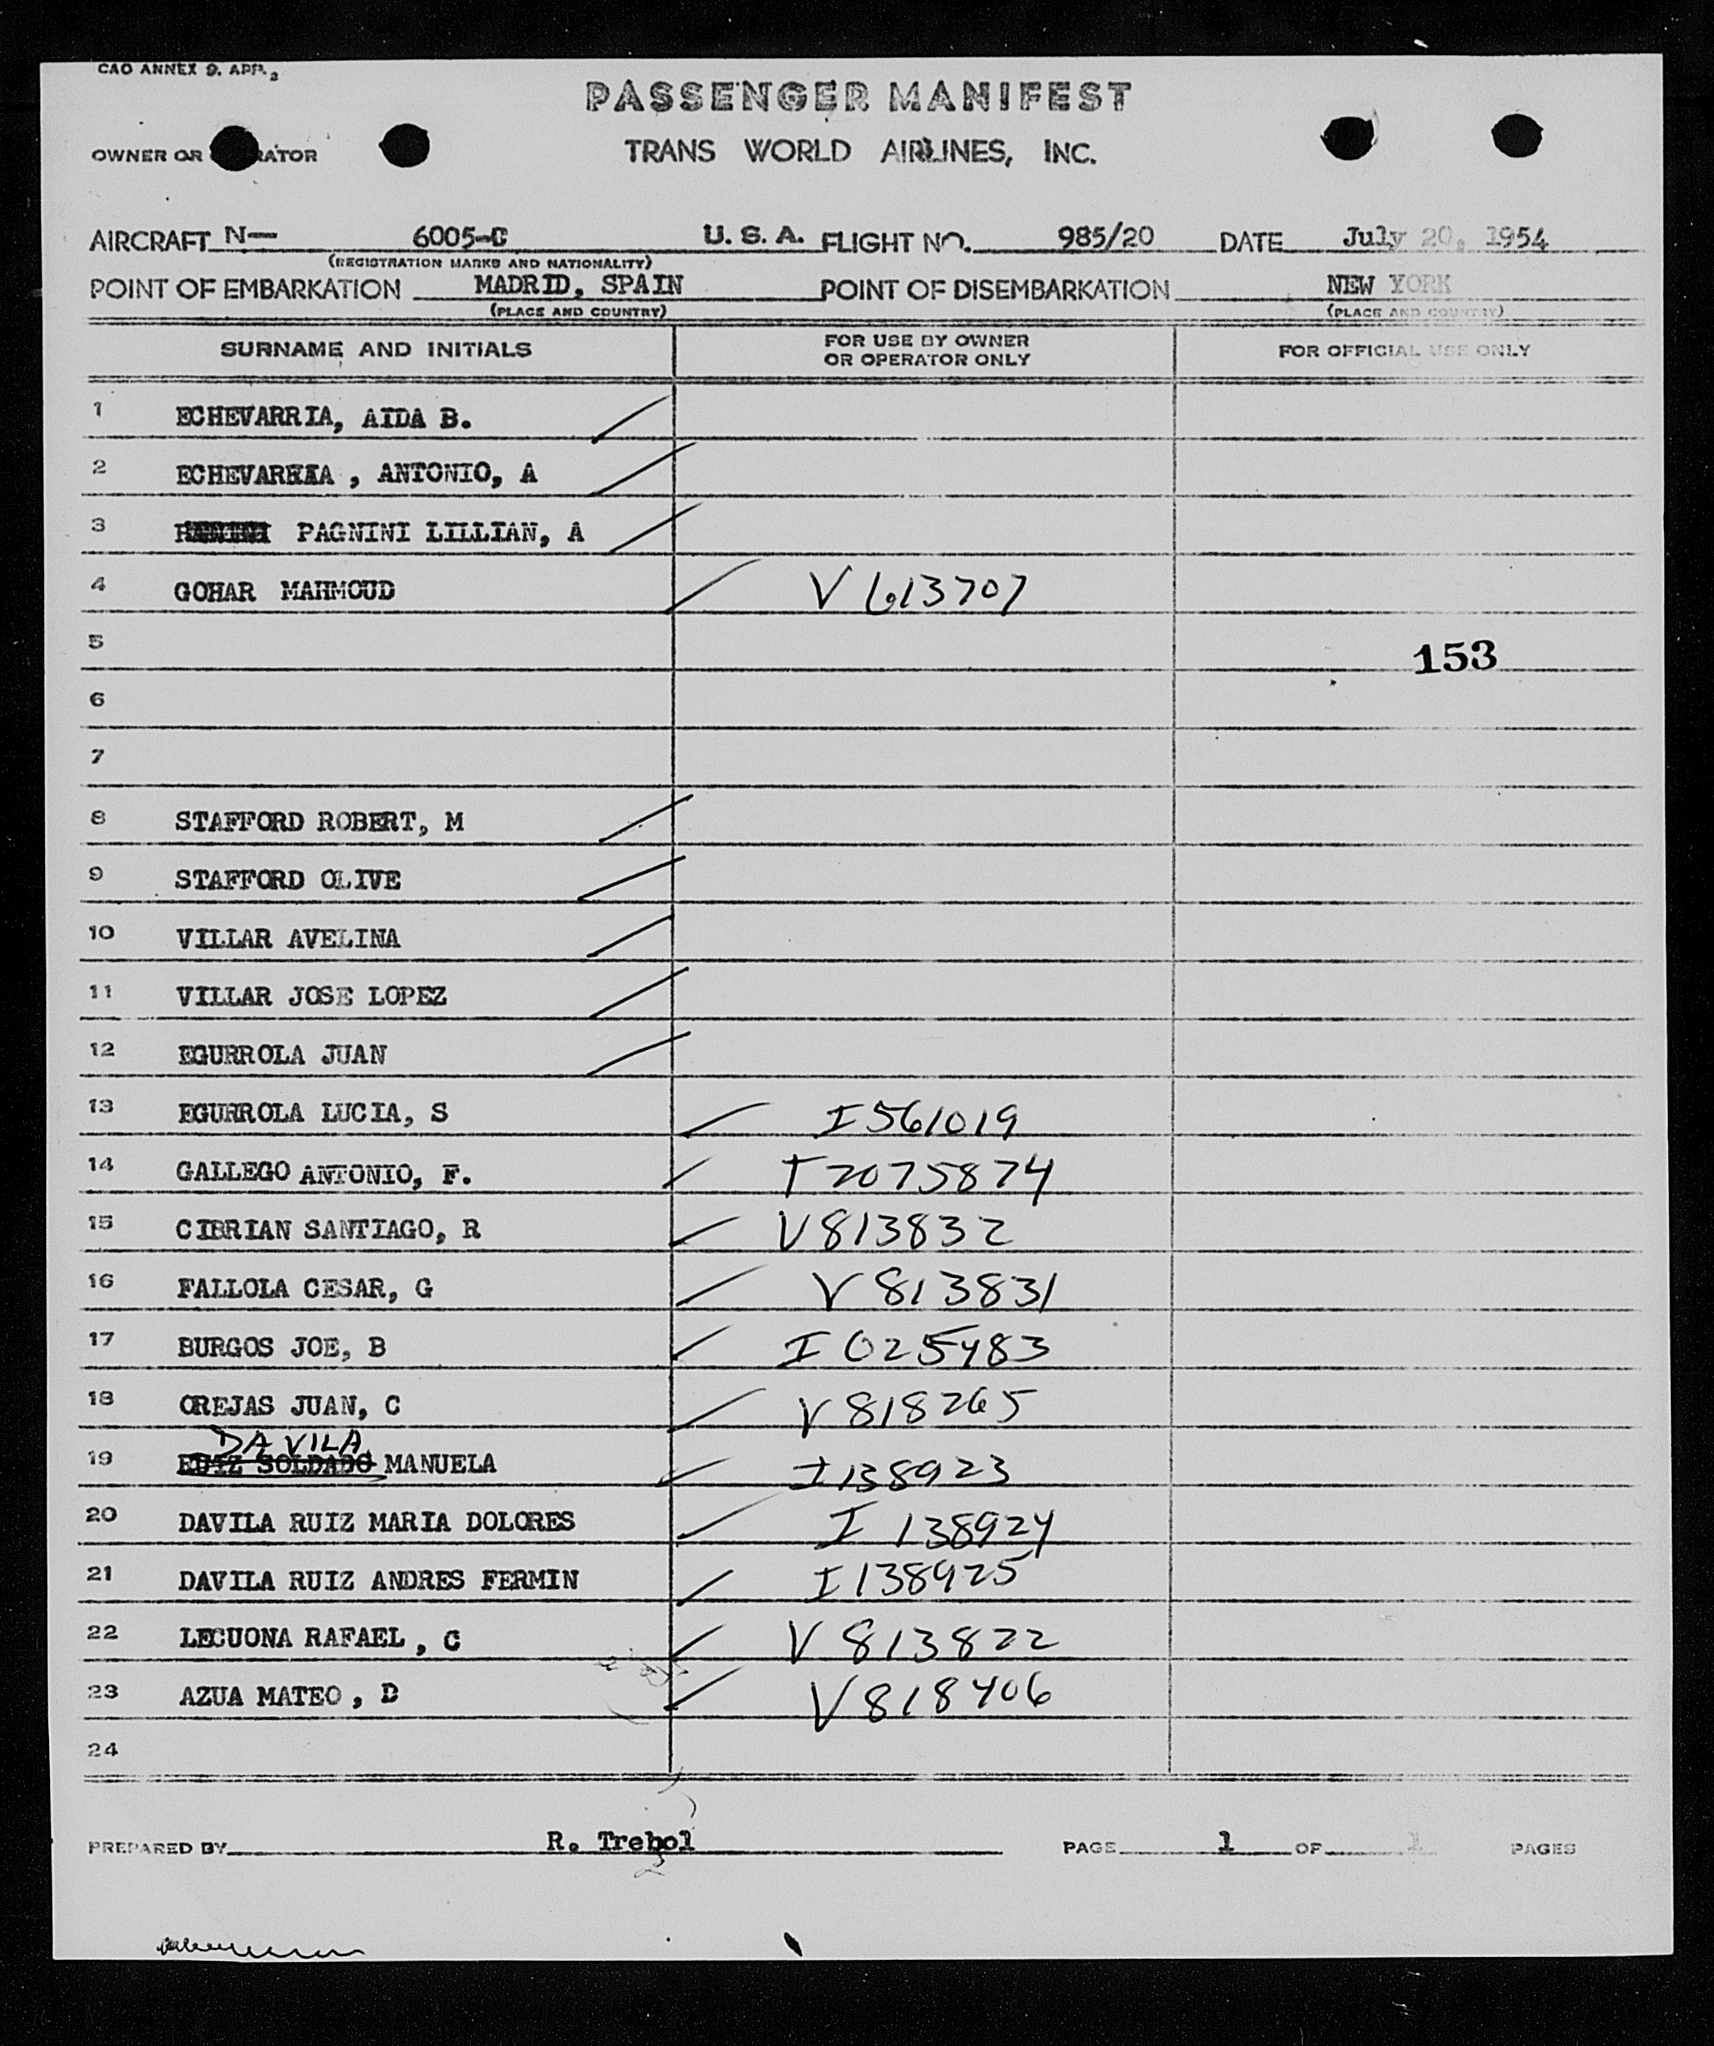 CAO ANNEX 9. APP. 3
PASSENGER MANIFEST
OWNER OR RATOR
TRANS WORLD AIRLINES, INC.
AIRCRAFT N— 6005-C U. S. A. FLIGHT NO. 985/20 DATE July 20, 1954
(REGISTRATION MARKS AND NATIONALITY)
POINT OF EMBARKATION MADRID, SPAIN POINT OF DISEMBARKATION NEW YORK
(PLACE AND COUNTRY) (PLACE AND COUNTRY)
SURNAME AND INITIALS FOR USE BY OWNER OR OPERATOR ONLY FOR OFFICIAL USE ONLY
1 ECHEVARRIA, AIDA B.
2 ECHEVARRIA , ANTONIO, A
3 PAGNINI LILLIAN, A
4 GOHAR MAHMOUD V 613707
5 153
6
7
8 STAFFORD ROBERT, M
9 STAFFORD OLIVE
10 VILLAR AVELINA
11 VILLAR JOSE LOPEZ
12 EGURROLA JUAN
13 EGURROLA LUCIA, S I 561019
14 GALLEGO ANTONIO, F. T 2075874
15 CIBRIAN SANTIAGO, R V 813832
16 FALLOLA CESAR, G V 813831
17 BURGOS JOE, B I 025483
18 OREJAS JUAN, C V 818265
DAVILA
19 RUIZ SOLDADO MANUELA I 138923
20 DAVILA RUIZ MARIA DOLORES I 138924
21 DAVILA RUIZ ANDRES FERMIN I 138925
22 LECUONA RAFAEL , C V 813822
23 AZUA MATEO , D V 818406
24
PREPARED BY R. Trebol PAGE 1 OF 1 PAGES